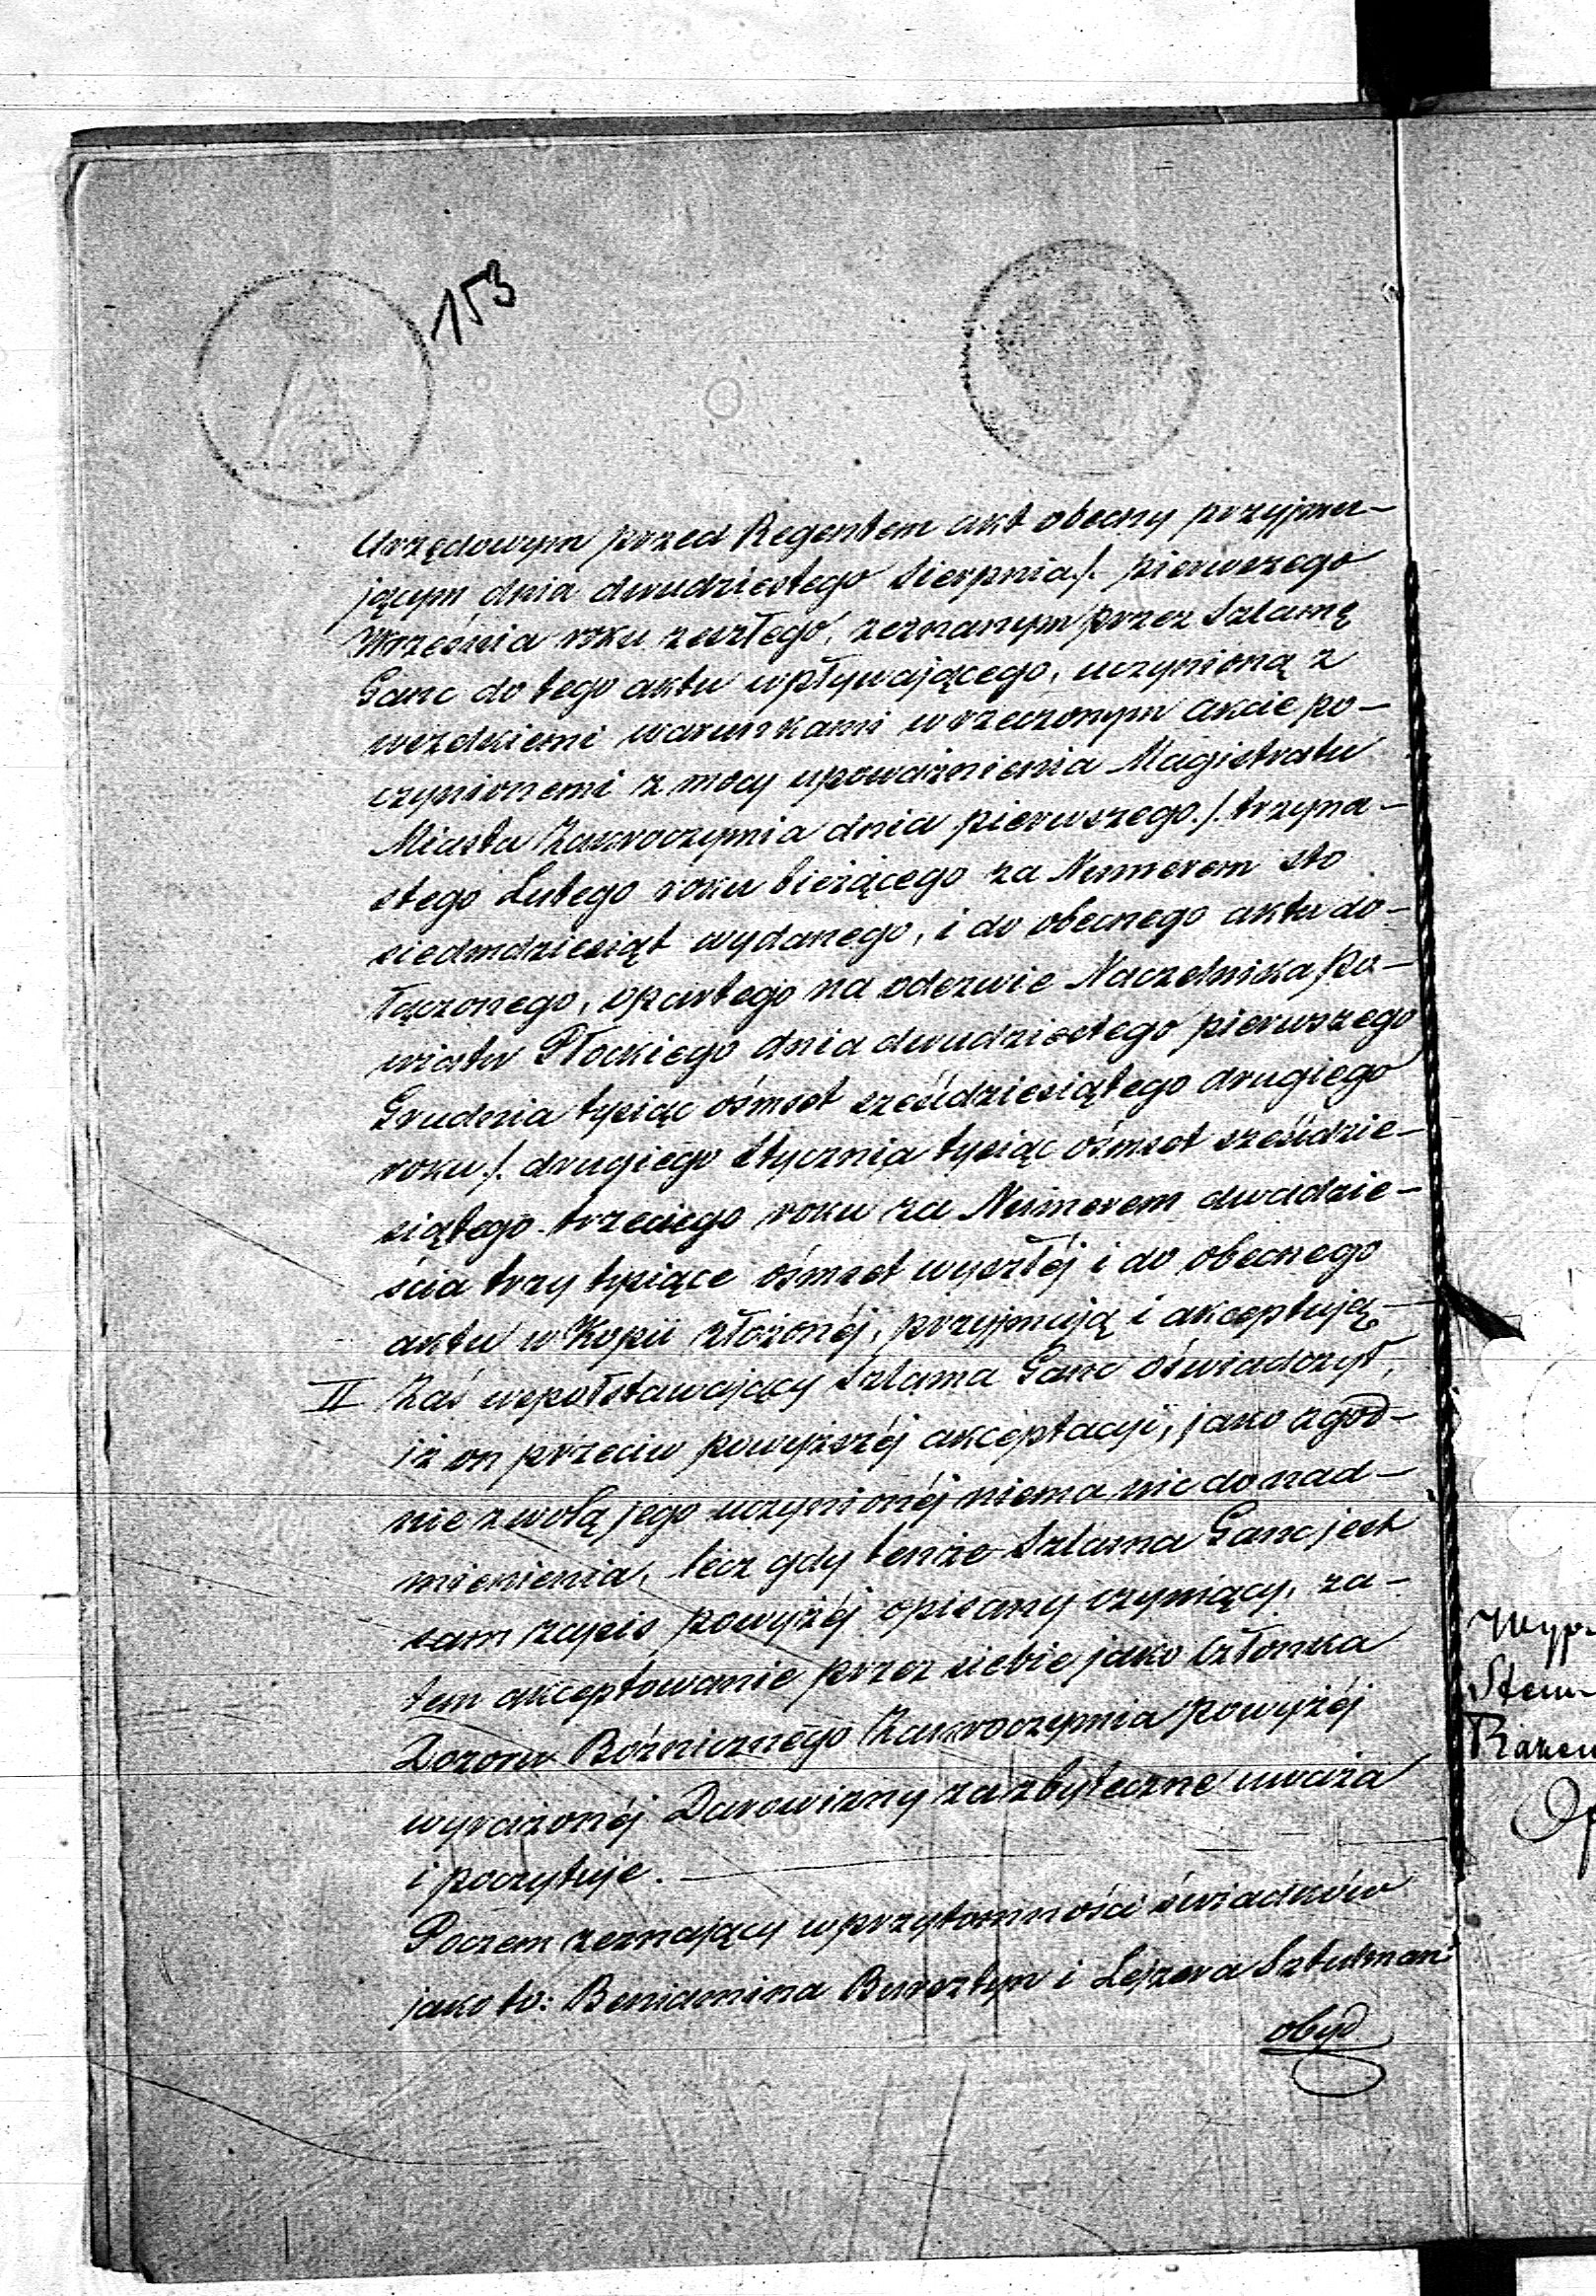 153
Urzędowym przed Regentem akt obecny przyjmu-
jącym dnia dwudziestego Sierpnia/. pierwszego
Września roku zeszłego, zeznanym przez Szlamę
Ganc do tego aktu wpływającego, uczynioną z
wszelkiemi warunkami w rzeczonym akcie po-
czynionemi z mocy upoważnienia Magistratu
Miasta Zakroczymia dnia pierwszego./. trzyna-
stego Lutego roku bieżącego za Numerem sto
siedmdziesiąt wydanego, i do obecnego aktu do-
łączonego, opartego na odezwie Naczelnika Po-
wiatu Płockiego dnia dwudziestego pierwszego
Grudnia tysiąc ośmset sześćdziesiątego drugiego
roku/. drugiego Stycznia tysiąc ośmset sześćdzie-
siątego trzeciego roku za Numerem dwadzie-
ścia trzy tysiące ośmset wyszłéj i do obecnego
aktu w Kopii złożonéj, przyjmują i akceptują.—
II Zaś wspołstawający Szlama Ganc oświadczył,
iż on przeciw powyższéj akceptacyi, jako zgod-
nie z wolą jego uczynionéj niema nic do nad-
mienienia, lecz gdy tenże Szlama Ganc jest
sam zapis powyżéj opisany czyniący, za-
tem akceptowanie przez siebie jako Członka
Dozoru Bóżnicznego Zakroczymia powyżéj
wyrażonéj Darowizny za zbyteczne uważa
i poczytuje.—
Poczem zeznający w przytomności świadków
jako to: Beniamina Bursztyn i Lejzera Sztutman
obyd
Wyp
Stem